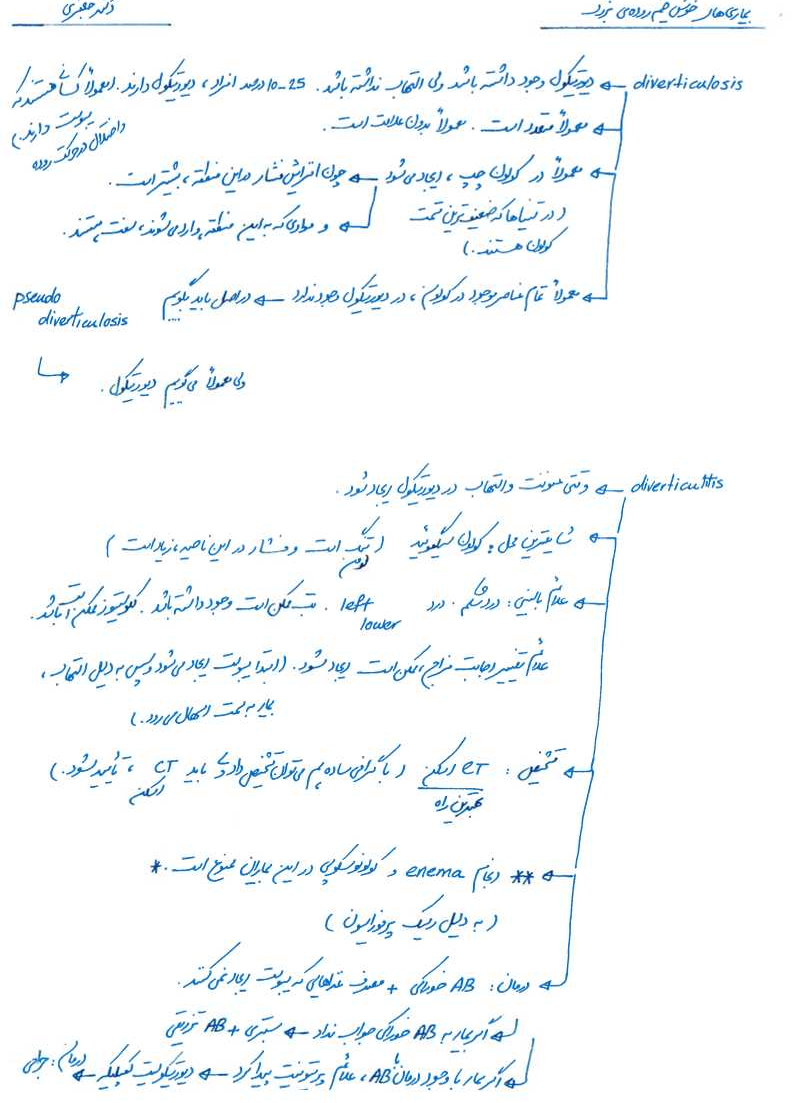 بیماری‌های خوش خیم روده‌ی بزرگ
دکتر جعفری
diverticulosis ← دیورتیکول وجود داشته باشد ولی التهاب نداشته باشد. 10-25 درصد افراد، دیورتیکول دارند. (معمولاً کسانی هستند که
یبوست دارند.)
و اختلال در حرکت روده
← معمولاً متعدد است. معمولاً بدون علامت است.
← معمولاً در کولون چپ، ایجاد می‌شود ← چون افزایش فشار در این منطقه، بیشتر است.
(در تنیاها که ضعیف‌ترین قسمت
کولون هستند.)
← و موادی که به این منطقه وارد می‌شوند، سفت هستند.
← معمولاً تمام عناصر موجود در کولون، در دیورتیکول وجود ندارد ← در اصل باید بگوییم
pseudo
diverticulosis
ولی معمولاً می‌گوییم دیورتیکول.
diverticulitis ← وقتی عفونت و التهاب در دیورتیکول ایجاد شود.
← شایعترین محل: کولون سیگموئید (لومن تنگ است و فشار در این ناحیه، زیاد است)
← علائم بالینی: درد شکم. درد left lower. تب ممکن است وجود داشته باشد. لکوسیتوز ممکن است باشد.
علائم تغییر اجابت مزاج، ممکن است ایجاد شود. (ابتدا یبوست ایجاد می‌شود و سپس به دلیل التهاب،
بیمار به سمت اسهال می‌رود.)
← تشخیص: CT اسکن (با گرافی ساده هم می‌توان تشخیص داد ولی باید CT اسکن، تأیید شود.)
بهترین راه
← ** انجام enema و کولونوسکوپی در این بیماران ممنوع است. *
(به دلیل ریسک پرفوراسیون)
← درمان: AB خوراکی + مصرف غذاهایی که یبوست ایجاد نمی‌کنند.
← اگر بیمار به AB خوراکی جواب نداد ← بستری + AB تزریقی
← اگر بیمار با وجود درمان با AB، علائم پریتونیت پیدا کرد ← دیورتیکولیت کمپلیکه ← درمان: جراحی